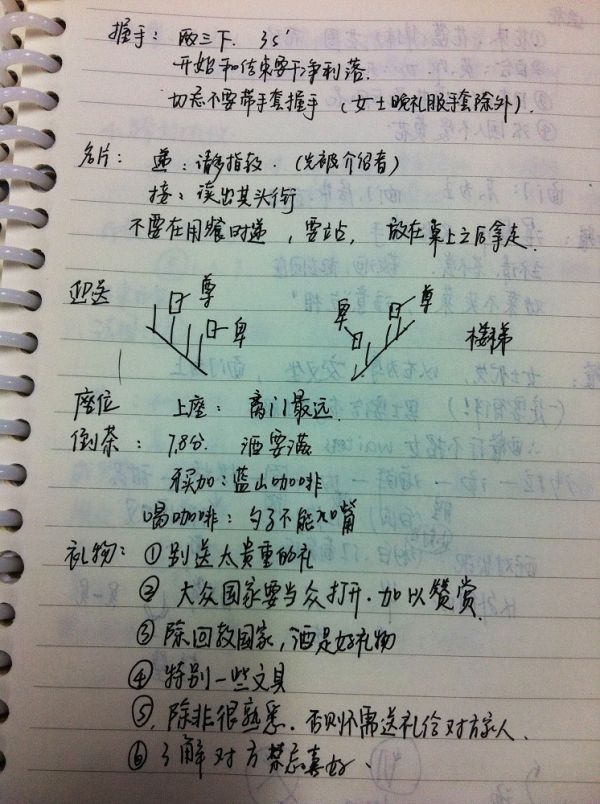 握手： 两三下. 3s'
开始和结束要干净利落.
切忌不要带手套握手 （女士晚礼服手套除外）.
名片： 递：请多指教. （先被介绍者）
接：读出其头衔
不要在用餐时递 ，要站， 放在桌上之后拿走.
迎送 尊 卑 卑 尊 楼梯
座位 上座： 离门最远.
倒茶：7,8分. 酒要满
买加：蓝山咖啡
喝咖啡：勺子不能入嘴
礼物： ①别送太贵重的礼
② 大众国家要当众打开.加以赞赏
③ 除回教国家，酒是好礼物
④ 特别一些文具
⑤. 除非很熟悉. 否则不需送礼给对方家人.
⑥ 了解对方禁忌喜好.